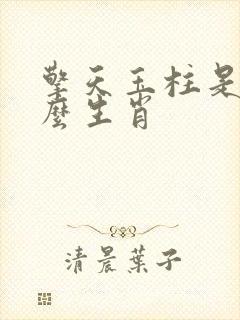 擎天玉柱是
麼生肖
清晨葉子